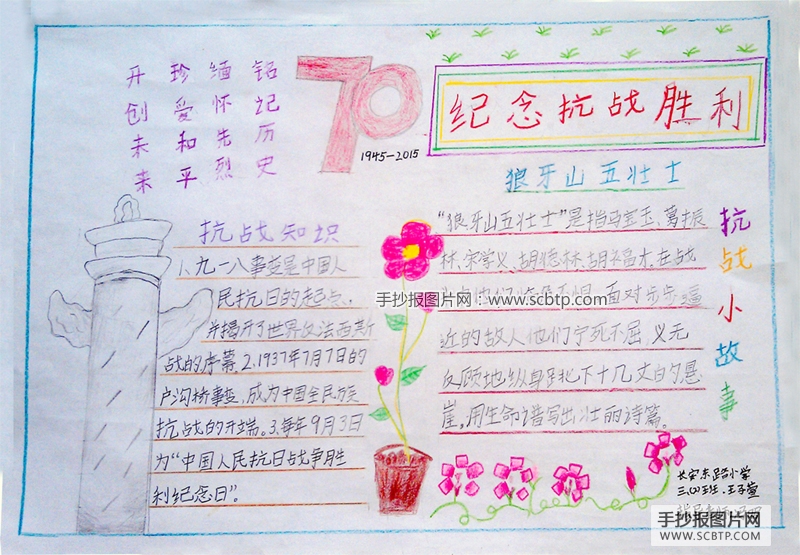 铭记历史
缅怀先烈
珍受和平
开创未来
70
1945—2015
纪念抗战胜利
狼牙山五壮士
抗战小故事
抗战知识
1、九一八事变是中国人
民抗日的起点,
并揭开了世界反法西斯
战的序幕.2.1937年7月7日的
户沟桥事变,成为中国全民族
抗战的开端。3.每年9月3日
为“中国人民抗日战争胜
利纪念日”。
“狼牙山五壮士”是指马宝玉、葛振
林、宋学义、胡德林、胡福才.在战
面对步步逼
近的敌人他们宁死不屈,义无
反顾地纵身跳下十几丈的悬
崖,用生命谱写出壮丽诗篇。
手抄报图片网:www.scbtp.com
长安东路小学
三(1)班.王子萱
手抄报图片网
SCBTP.COM